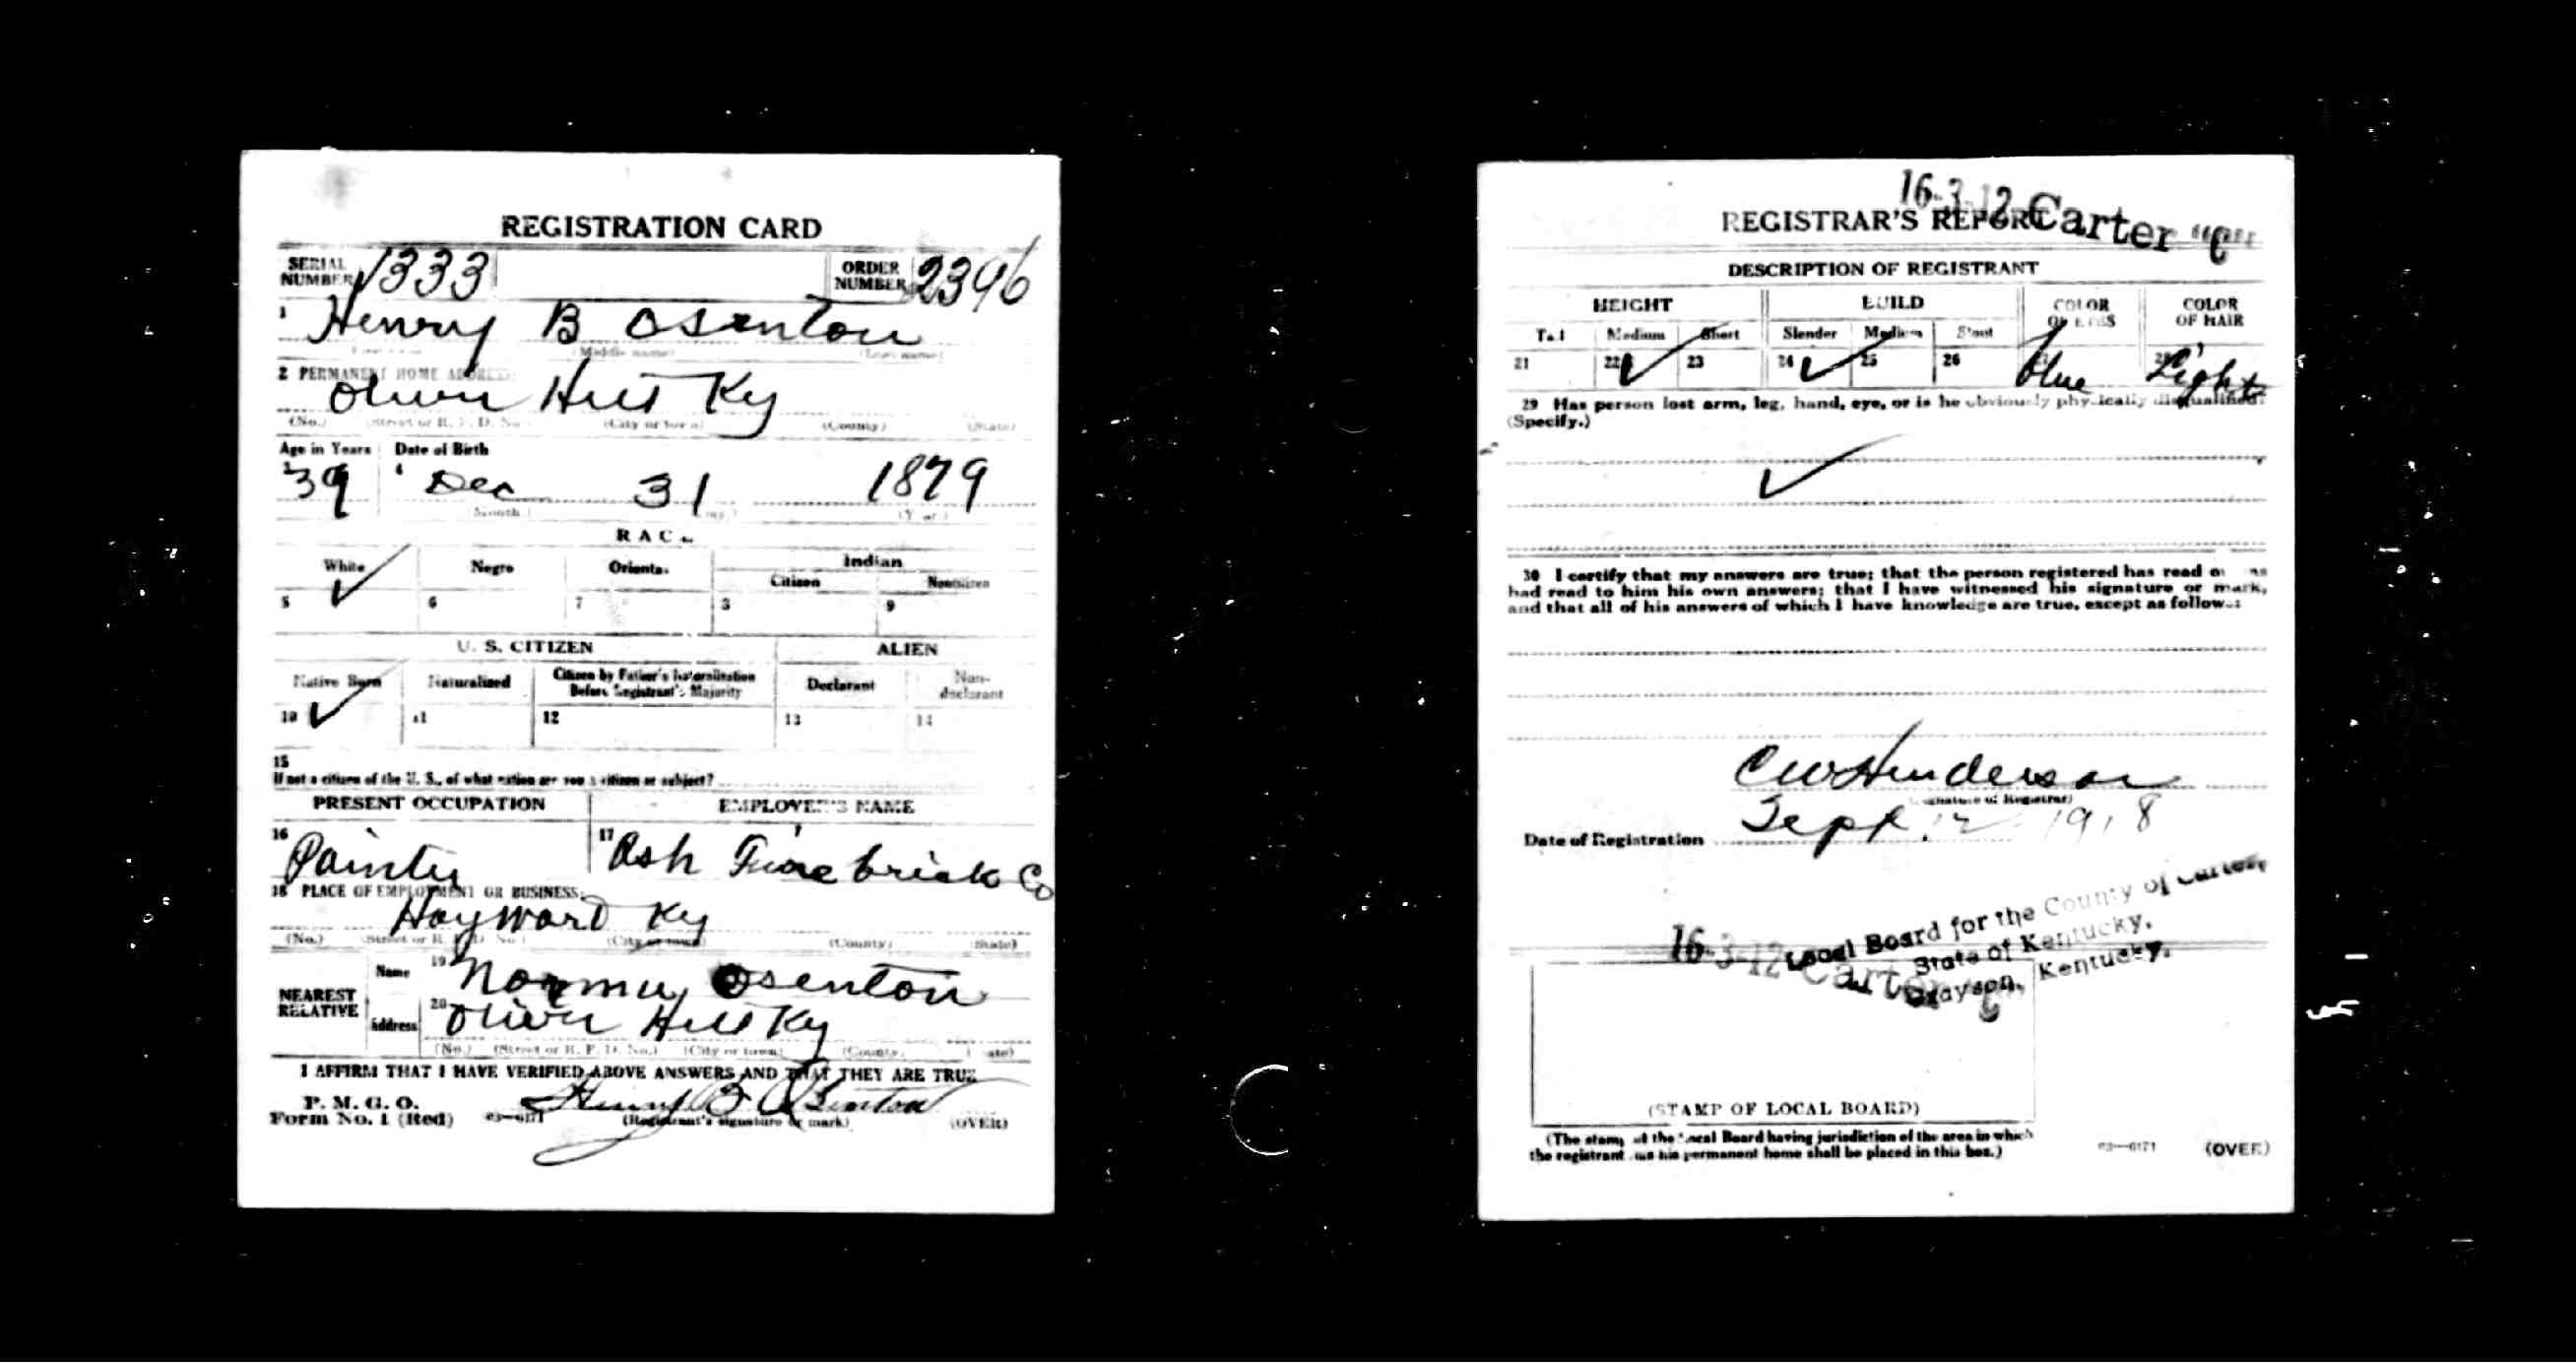 REGISTRATION CARD
SERIAL NUMBER 1333 ORDER NUMBER 2396
1 Henry B Osenton
(Middle name) (Last name)
2 PERMANENT HOME ADDRESS
Olive Hill Ky
(No.) (Street or R. F. D. No.) (City or town) (County) (State)
Age in Years Date of Birth
3 39 4 Dec 31 1879
(Month) (Day) (Year)
RACE
White Negro Oriental Indian
Citizen Noncitizen
5 ✓ 6 7 8 9
U. S. CITIZEN ALIEN
Native Born Naturalized Citizen by Father's Naturalization Before Registrant's Majority Declarant Non-declarant
10 ✓ 11 12 13 14
15
If not a citizen of the U. S., of what nation are you a citizen or subject?
PRESENT OCCUPATION EMPLOYER'S NAME
16 Painter 17 Ash Fire brick Co
18 PLACE OF EMPLOYMENT OR BUSINESS:
Hayward Ky
(No.) (Street or R. F. D. No.) (City or town) (County) (State)
NEAREST RELATIVE Name 19 Osenton
Address 20 Olive Hill Ky
(No.) (Street or R. F. D. No.) (City or town) (County) (State)
I AFFIRM THAT I HAVE VERIFIED ABOVE ANSWERS AND THAT THEY ARE TRUE
P. M. G. O.
Form No. 1 (Red) 03—6171 Henry B Osenton
(Registrant's signature or mark) (OVER)
16-3-12 Carter "C"
REGISTRAR'S REPORT
DESCRIPTION OF REGISTRANT
HEIGHT BUILD COLOR OF EYES COLOR OF HAIR
Tall Medium Short Slender Medium Stout
21 22 ✓ 23 24 ✓ 25 26 27 blue 28 Light
29 Has person lost arm, leg, hand, eye, or is he obviously physically disqualified?
(Specify.)
✓
30 I certify that my answers are true; that the person registered has read or has
had read to him his own answers; that I have witnessed his signature or mark,
and that all of his answers of which I have knowledge are true, except as follows:
C W Henderson
(Signature of Registrar)
Date of Registration Sept. 12 1918
Local Board for the County of Carter,
State of Kentucky,
Grayson, Kentucky.
16-3-12 Carter C
(STAMP OF LOCAL BOARD)
(The stamp of the Local Board having jurisdiction of the area in which
the registrant has his permanent home shall be placed in this box.)
03—6171 (OVER)